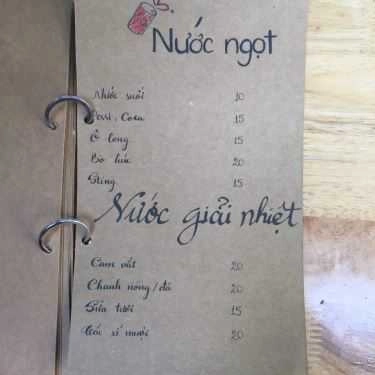 5.
Nước ngọt
Nước suối 10
Pessi, Coca 15
Ô long 15
Bò húc 20
Sting 15
Nước giải nhiệt
Cam vắt 20
Chanh nóng/đá 20
Sữa tươi 15
Cóc xí muội 20